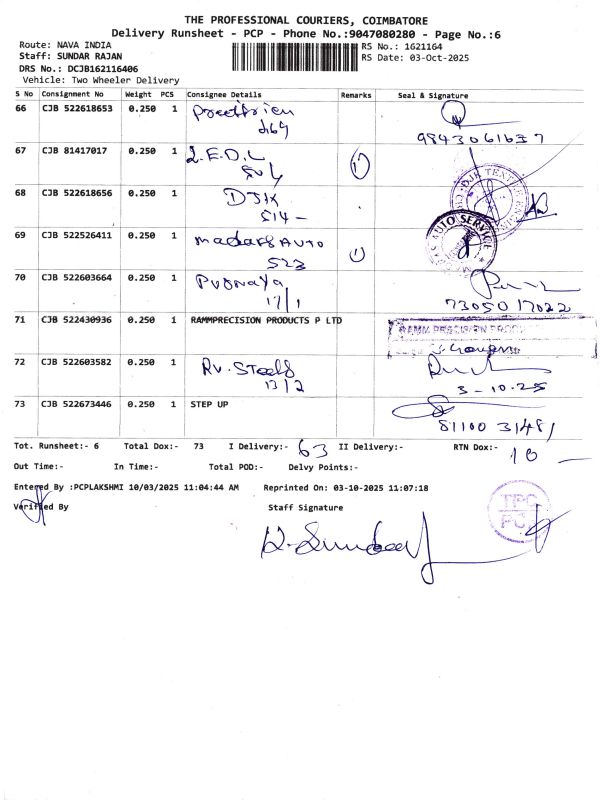 THE PROFESSIONAL COURIERS, COIMBATORE
Delivery Runsheet - PCP - Phone No.:9047080280 - Page No.:6
Route: NAVA INDIA
RS No.: 1621164
Staff: SUNDAR RAJAN
RS Date: 03-Oct-2025
DRS No.: DCJB162116406
Vehicle: Two Wheeler Delivery
S No Consignment No Weight PCS Consignee Details Remarks Seal & Signature
66 CJB 522618653 0.250 1
9843061637
67 CJB 81417017 0.250 1 L.E.D.L
68 CJB 522618656 0.250 1
514-
69 CJB 522526411 0.250 1 Madars AUTO
523
AUTO SERVICE
70 CJB 522603664 0.250 1
17/1
73050 17022
71 CJB 522430936 0.250 1 RAMMPRECISION PRODUCTS P LTD
72 CJB 522603582 0.250 1 Rv. Steels
13/2
3-10.25
73 CJB 522673446 0.250 1 STEP UP
81100 31481
Tot. Runsheet:- 6 Total Dox:- 73 I Delivery:- 63 II Delivery:- RTN Dox:- 10
Out Time:- In Time:- Total POD:- Delvy Points:-
Entered By :PCPLAKSHMI 10/03/2025 11:04:44 AM Reprinted On: 03-10-2025 11:07:18
Verified By Staff Signature
TPC